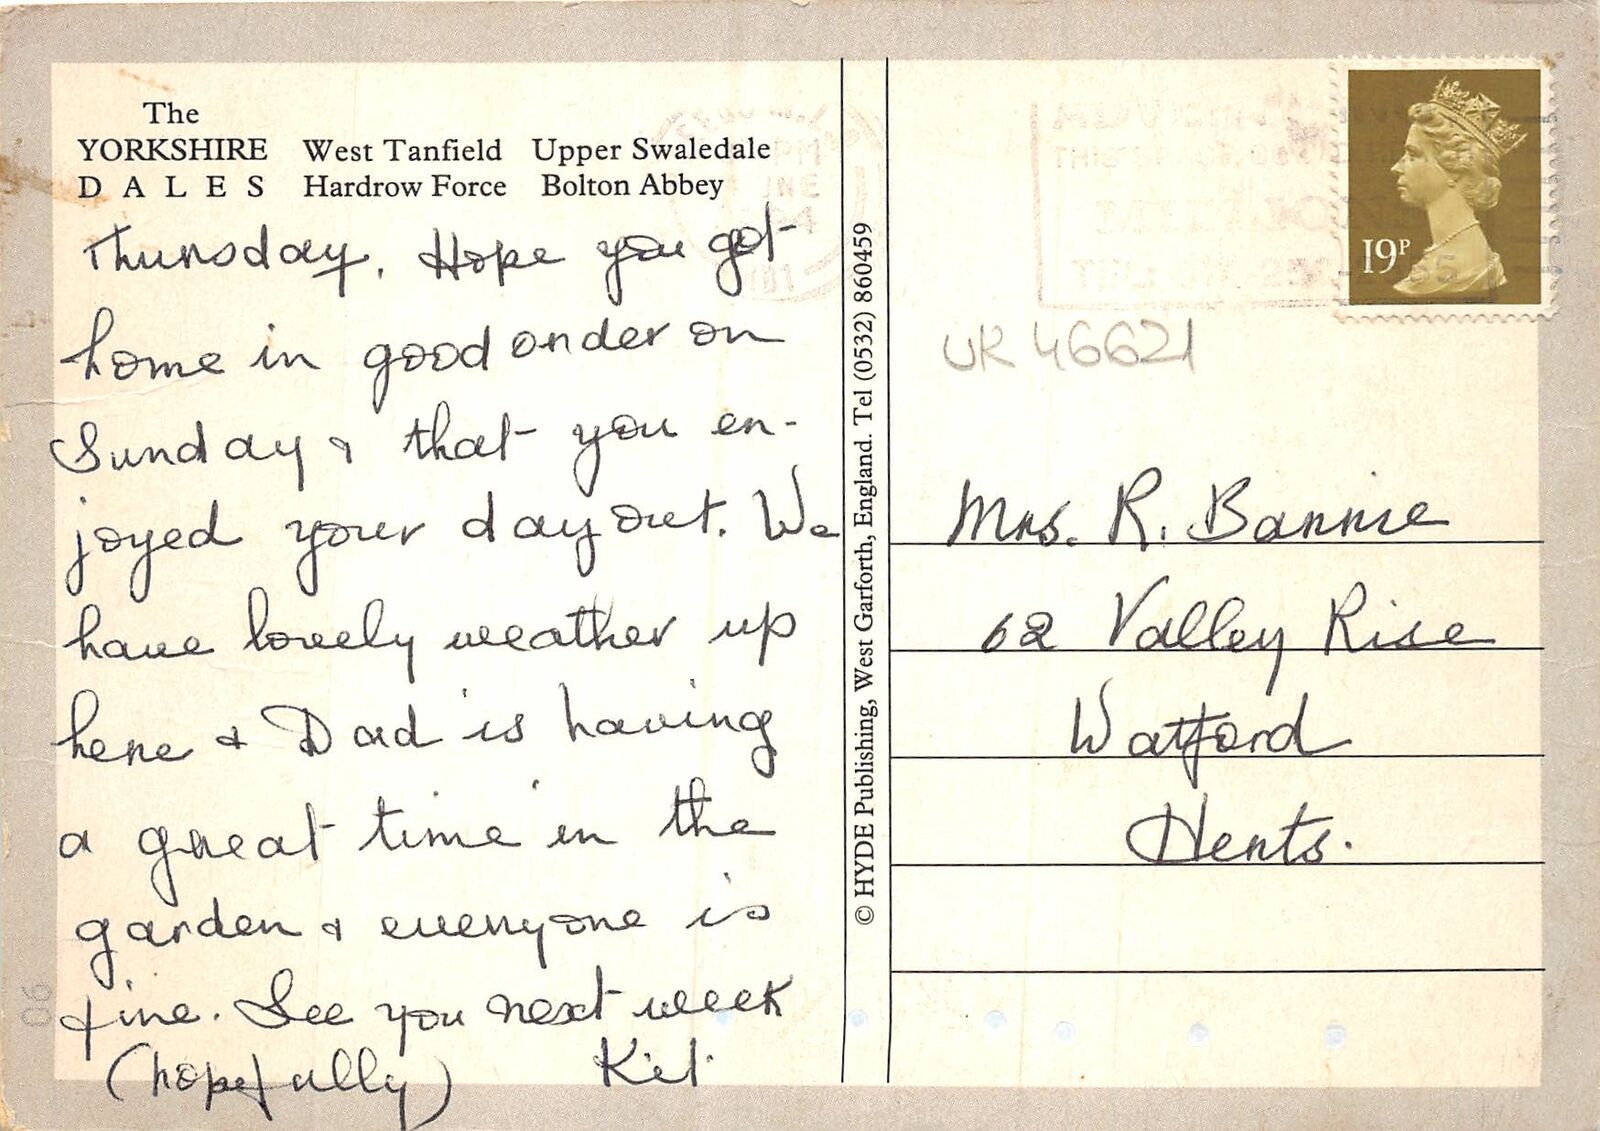 The
YORKSHIRE
DALES
West Tanfield Upper Swaledale
Hardrow Force Bolton Abbey
Thursday. Hope you got
home in good order on
Sunday & that you en-
joyed your day out. We
have lovely weather up
here & Dad is having
a great time in the
garden & everyone is
fine. See you next week
(hopefully) Kit
© HYDE Publishing, West Garforth, England. Tel (0532) 860459
PM
19P
UK 46621
Mrs. R. Bannie
62 Valley Rise
Watford
Herts.
06